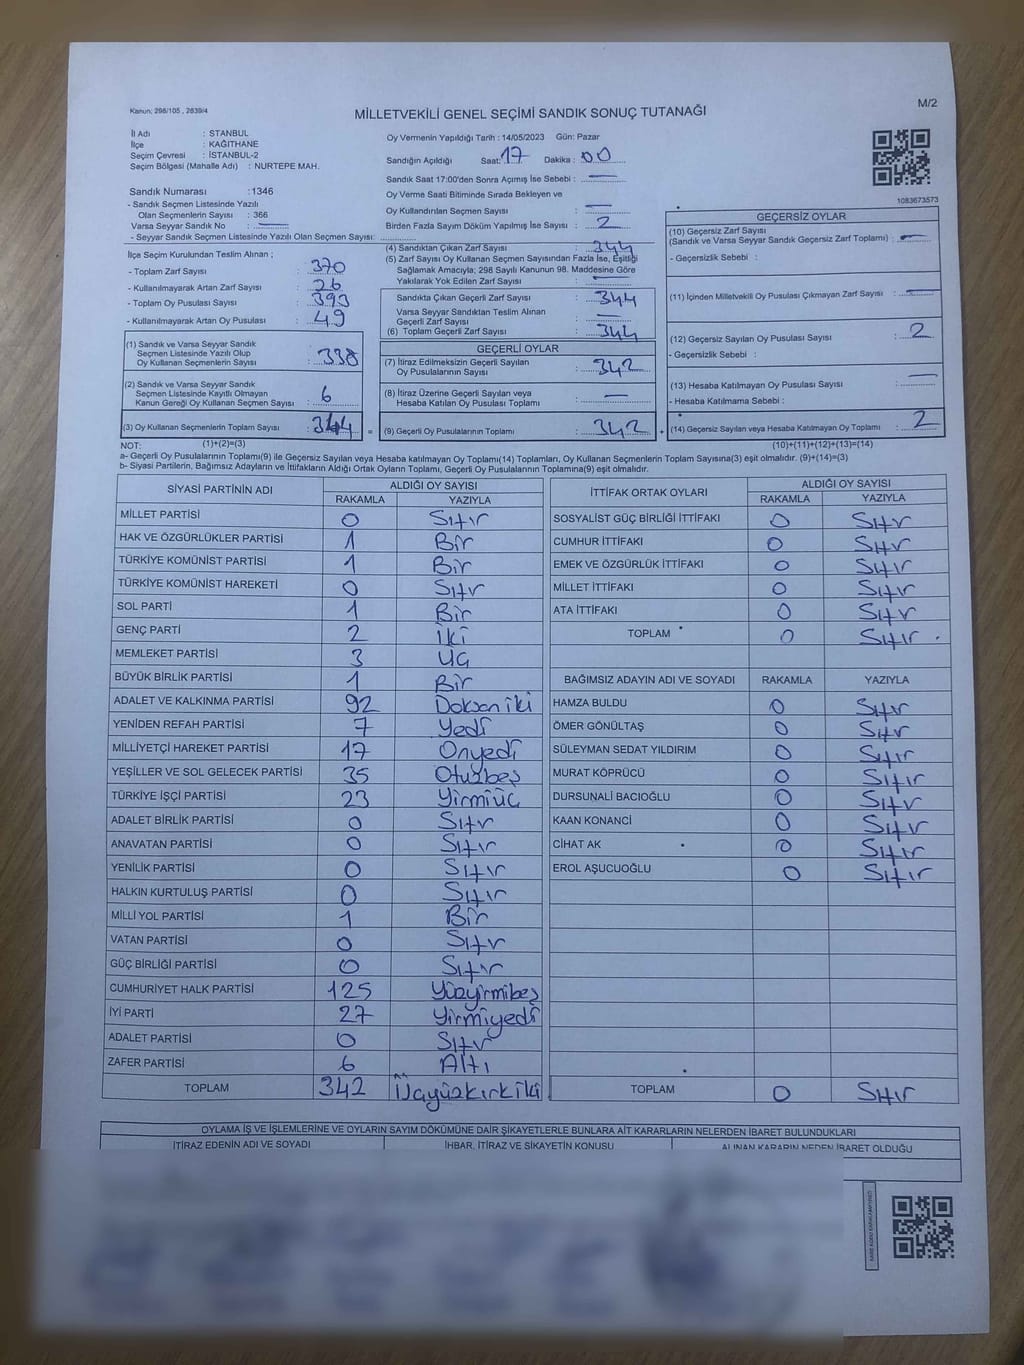 Kanun: 298/105 , 2839/4
M/2
MİLLETVEKİLİ GENEL SEÇİMİ SANDIK SONUÇ TUTANAĞI
İl Adı : STANBUL
İlçe : KAĞITHANE
Seçim Çevresi : İSTANBUL-2
Seçim Bölgesi (Mahalle Adı) : NURTEPE MAH.
Sandık Numarası :1346
- Sandık Seçmen Listesinde Yazılı
Olan Seçmenlerin Sayısı : 366
Varsa Seyyar Sandık No : —
- Seyyar Sandık Seçmen Listesinde Yazılı Olan Seçmen Sayısı:
İlçe Seçim Kurulundan Teslim Alınan ;
- Toplam Zarf Sayısı : 370
- Kullanılmayarak Artan Zarf Sayısı : 26
- Toplam Oy Pusulası Sayısı : 393
- Kullanılmayarak Artan Oy Pusulası : 49
(1) Sandık ve Varsa Seyyar Sandık
Seçmen Listesinde Yazılı Olup
Oy Kullanan Seçmenlerin Sayısı : 338
(2) Sandık ve Varsa Seyyar Sandık
Seçmen Listesinde Kayıtlı Olmayan
Kanun Gereği Oy Kullanan Seçmen Sayısı : 6
(3) Oy Kullanan Seçmenlerin Toplam Sayısı : 344
Oy Vermenin Yapıldığı Tarih : 14/05/2023 Gün: Pazar
Sandığın Açıldığı Saat: 17 Dakika : 00
Sandık Saat 17:00'den Sonra Açımış İse Sebebi : —
Oy Verme Saati Bitiminde Sırada Bekleyen ve
Oy Kullandırılan Seçmen Sayısı : —
Birden Fazla Sayım Döküm Yapılmış İse Sayısı : 2
(4) Sandıktan Çıkan Zarf Sayısı : 344
(5) Zarf Sayısı Oy Kullanan Seçmen Sayısından Fazla İse, Eşitliği
Sağlamak Amacıyla; 298 Sayılı Kanunun 98. Maddesine Göre
Yakılarak Yok Edilen Zarf Sayısı : —
Sandıkta Çıkan Geçerli Zarf Sayısı : 344
Varsa Seyyar Sandıktan Teslim Alınan
Geçerli Zarf Sayısı : —
(6) Toplam Geçerli Zarf Sayısı : 344
GEÇERLİ OYLAR
(7) İtiraz Edilmeksizin Geçerli Sayılan
Oy Pusulalarının Sayısı : 342
(8) İtiraz Üzerine Geçerli Sayılan veya
Hesaba Katılan Oy Pusulası Toplamı : —
= (9) Geçerli Oy Pusulalarının Toplamı : 342
1083673573
GEÇERSİZ OYLAR
(10) Geçersiz Zarf Sayısı
(Sandık ve Varsa Seyyar Sandık Geçersiz Zarf Toplamı) : —
- Geçersizlik Sebebi :
(11) İçinden Milletvekili Oy Pusulası Çıkmayan Zarf Sayısı : —
(12) Geçersiz Sayılan Oy Pusulası Sayısı : 2
- Geçersizlik Sebebi :
(13) Hesaba Katılmayan Oy Pusulası Sayısı : —
- Hesaba Katılmama Sebebi :
+ (14) Geçersiz Sayılan veya Hesaba Katılmayan Oy Toplamı : 2
NOT: (1)+(2)=(3)
(10)+(11)+(12)+(13)=(14)
a- Geçerli Oy Pusulalarının Toplamı(9) ile Geçersiz Sayılan veya Hesaba katılmayan Oy Toplamı(14) Toplamları, Oy Kullanan Seçmenlerin Toplam Sayısına(3) eşit olmalıdır. (9)+(14)=(3)
b- Siyasi Partilerin, Bağımsız Adayların ve İttifakların Aldığı Ortak Oyların Toplamı, Geçerli Oy Pusulalarının Toplamına(9) eşit olmalıdır.
SİYASİ PARTİNİN ADI ALDIĞI OY SAYISI
RAKAMLA YAZIYLA
MİLLET PARTİSİ 0 Sıfır
HAK VE ÖZGÜRLÜKLER PARTİSİ 1 Bir
TÜRKİYE KOMÜNİST PARTİSİ 1 Bir
TÜRKİYE KOMÜNİST HAREKETİ 0 Sıfır
SOL PARTİ 1 Bir
GENÇ PARTİ 2 İki
MEMLEKET PARTİSİ 3 Üç
BÜYÜK BİRLİK PARTİSİ 1 Bir
ADALET VE KALKINMA PARTİSİ 92 Doksaniki
YENİDEN REFAH PARTİSİ 7 Yedi
MİLLİYETÇİ HAREKET PARTİSİ 17 Onyedi
YEŞİLLER VE SOL GELECEK PARTİSİ 35 Otuzbeş
TÜRKİYE İŞÇİ PARTİSİ 23 Yirmiüç
ADALET BİRLİK PARTİSİ 0 Sıfır
ANAVATAN PARTİSİ 0 Sıfır
YENİLİK PARTİSİ 0 Sıfır
HALKIN KURTULUŞ PARTİSİ 0 Sıfır
MİLLİ YOL PARTİSİ 1 Bir
VATAN PARTİSİ 0 Sıfır
GÜÇ BİRLİĞİ PARTİSİ 0 Sıfır
CUMHURİYET HALK PARTİSİ 125 Yüzyirmibeş
İYİ PARTİ 27 Yirmiyedi
ADALET PARTİSİ 0 Sıfır
ZAFER PARTİSİ 6 Altı
TOPLAM 342 Üçyüzkırkiki
İTTİFAK ORTAK OYLARI ALDIĞI OY SAYISI
RAKAMLA YAZIYLA
SOSYALİST GÜÇ BİRLİĞİ İTTİFAKI 0 Sıfır
CUMHUR İTTİFAKI 0 Sıfır
EMEK VE ÖZGÜRLÜK İTTİFAKI 0 Sıfır
MİLLET İTTİFAKI 0 Sıfır
ATA İTTİFAKI 0 Sıfır
TOPLAM 0 Sıfır
BAĞIMSIZ ADAYIN ADI VE SOYADI RAKAMLA YAZIYLA
HAMZA BULDU 0 Sıfır
ÖMER GÖNÜLTAŞ 0 Sıfır
SÜLEYMAN SEDAT YILDIRIM 0 Sıfır
MURAT KÖPRÜCÜ 0 Sıfır
DURSUNALİ BACIOĞLU 0 Sıfır
KAAN KONANCİ 0 Sıfır
CİHAT AK 0 Sıfır
EROL AŞUCUOĞLU 0 Sıfır
TOPLAM 0 Sıfır
OYLAMA İŞ VE İŞLEMLERİNE VE OYLARIN SAYIM DÖKÜMÜNE DAİR ŞİKAYETLERLE BUNLARA AİT KARARLARIN NELERDEN İBARET BULUNDUKLARI
İTİRAZ EDENİN ADI VE SOYADI İHBAR, İTİRAZ VE ŞİKAYETİN KONUSU ALINAN KARARIN NEDEN İBARET OLDUĞU